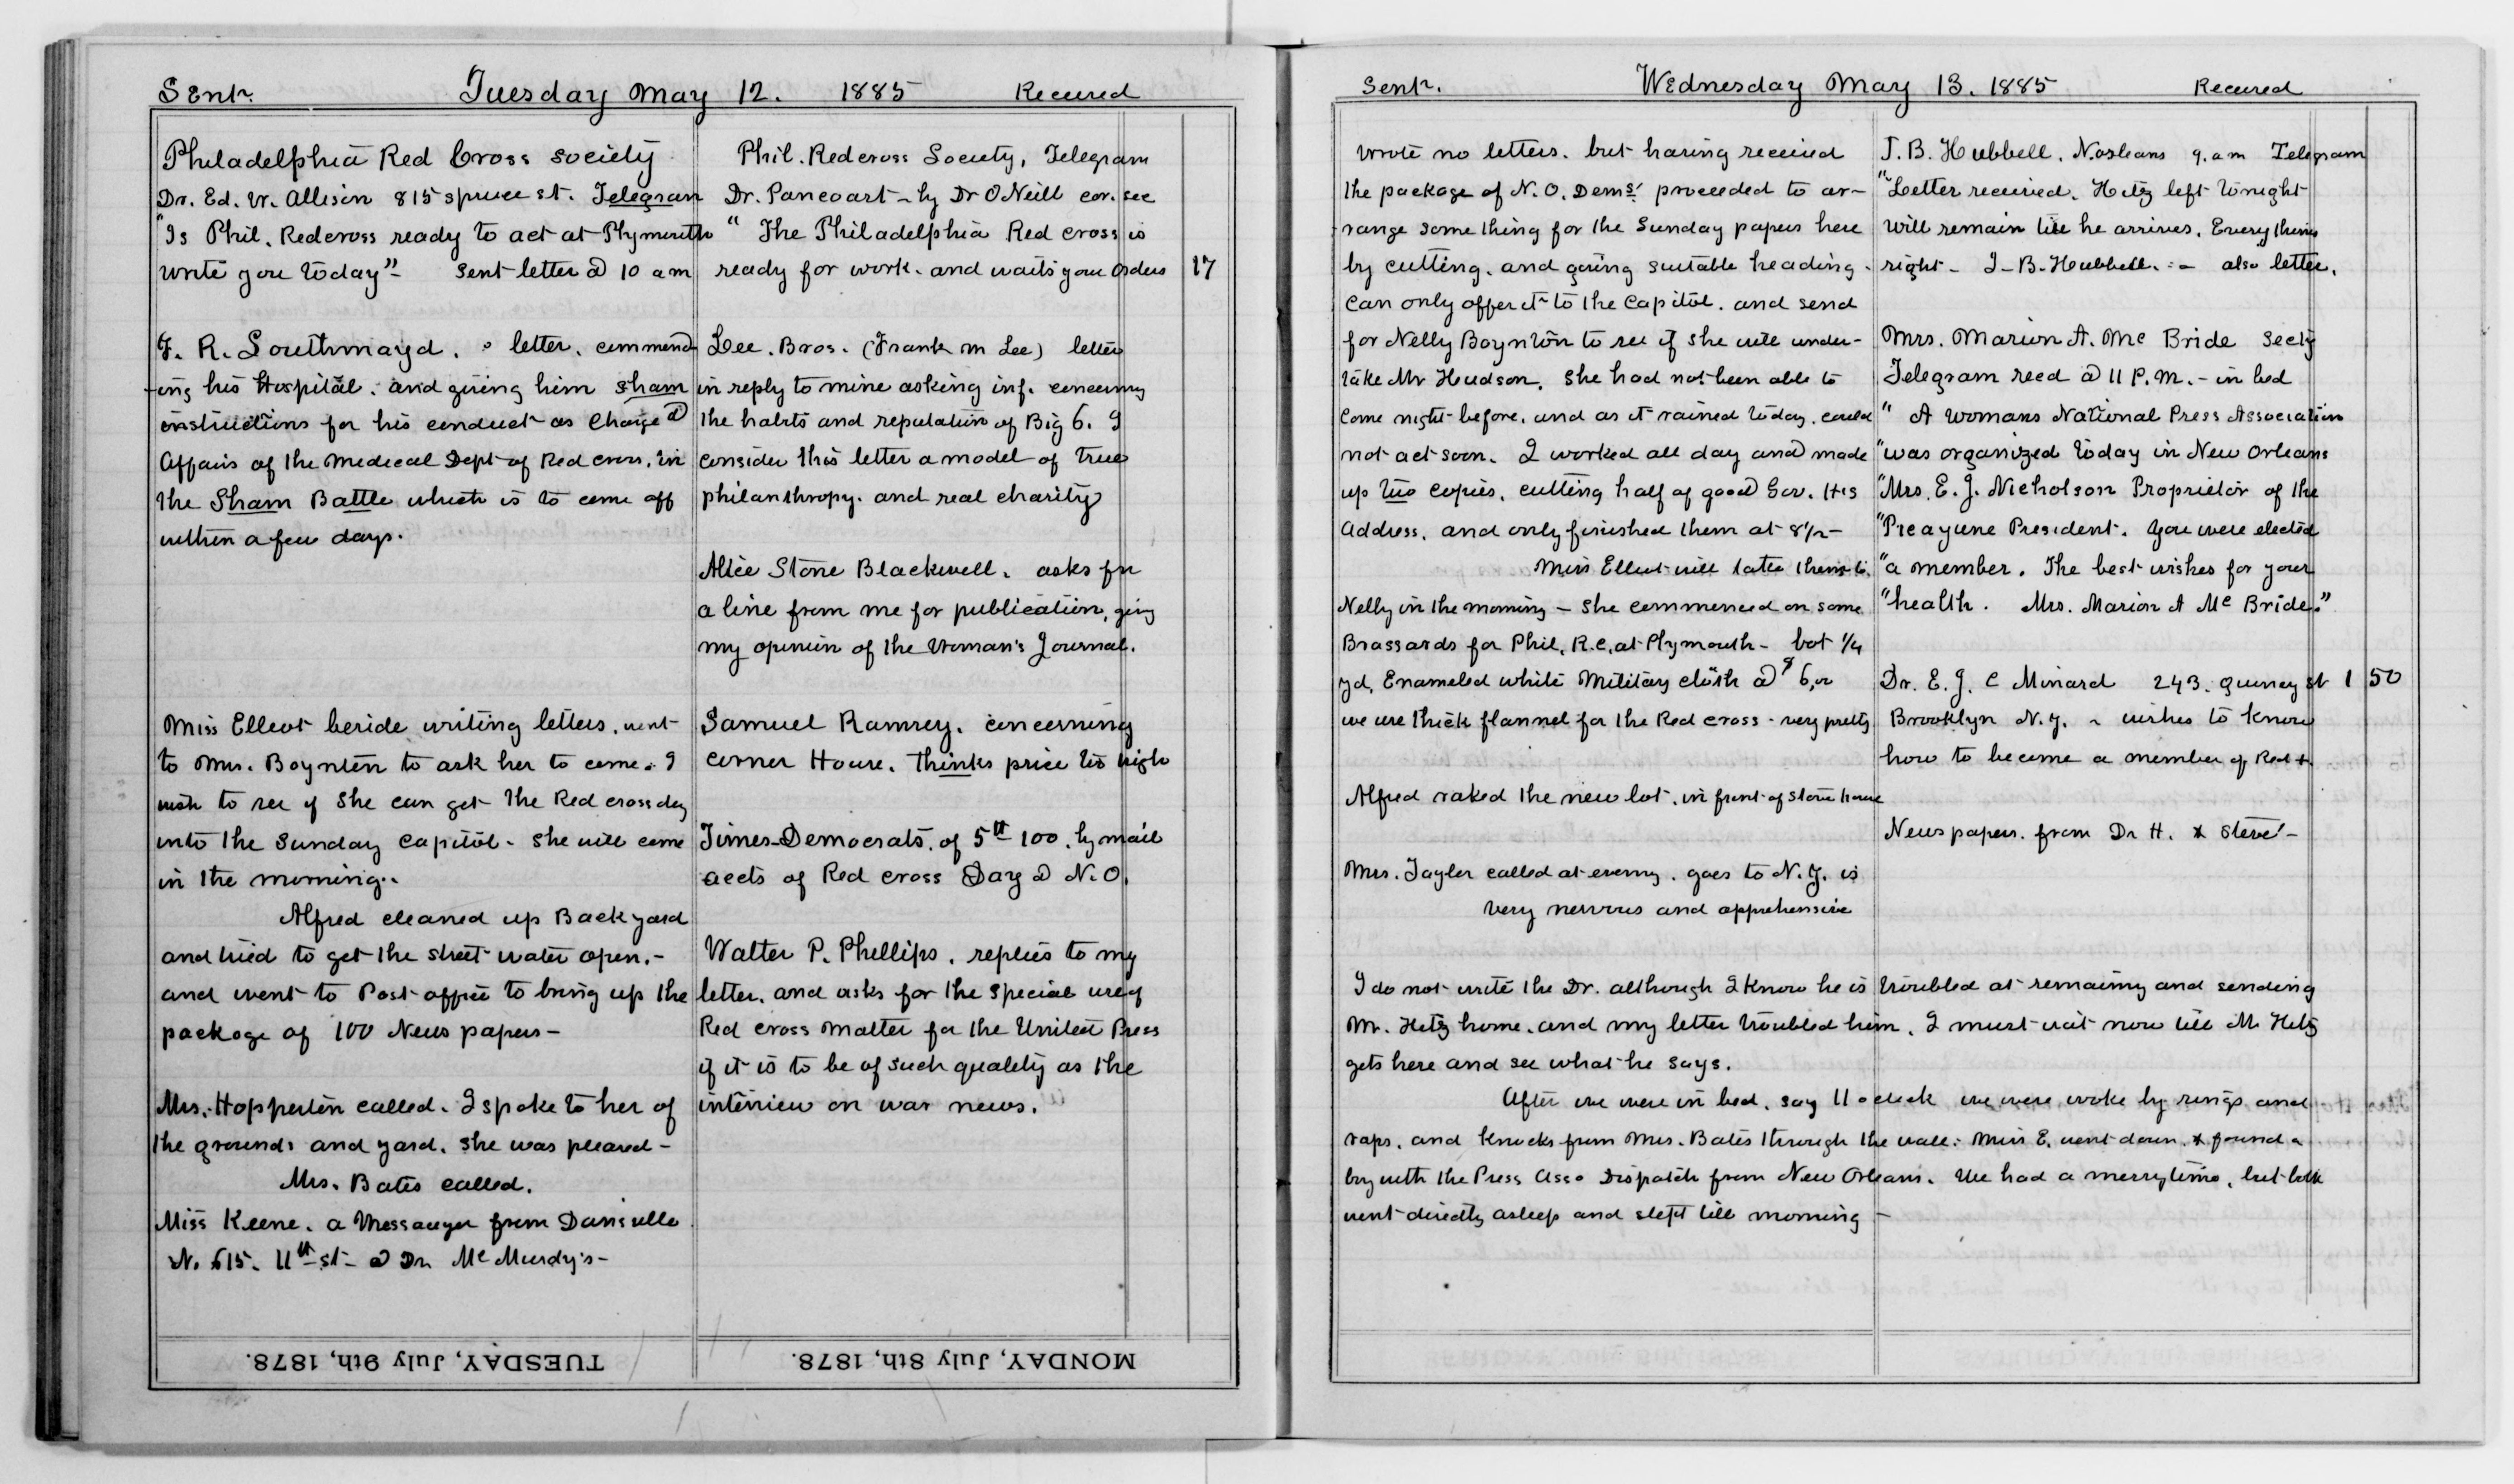 Sent.
Tuesday May 12. 1885
Received
Philadelphia Red Cross society
Dr. Ed. W. Allison 815 spruce st. Telegram
"Is Phil. Redcross ready to act at Plymouth
write you today"- Sent letter @ 10 am
F. R. Southmayd. letter. commend-
-ing his Hospital. and giving him sham
instructions for his conduct as Charge d
Affairs of the Medical Dept of Red cross. in
the Sham Battle which is to come off
within a few days.
Miss Elleot beside writing letters. went
to Mrs. Boynton to ask her to come. I
wish to see if she can get the Red cross day
into the Sunday Capitol - She will come
in the morning..
Alfred cleaned up Back yard
and tried to get the street water open.-
and went to Post office to bring up the
package of 100 News papers -
Mrs. Hopperten called. I spoke to her of
the grounds and yard. she was pleased -
Mrs. Bates called.
Miss Keene. a Messanger from Dansville
N. 615. 11th st - @ Dr. McMurdy's -
Phil. Redcross Society, Telegram
Dr. Pancoart - by Dr O'Neill cor. sec
" The Philadelphia Red cross is
ready for work. and waits your orders 17
Lee. Bros. (Frank M Lee) letter
in reply to mine asking inf. concerning
the habits and reputation of Big 6. I
consider this letter a model of true
philanthropy. and real charity
Alice Stone Blackwell. asks for
a line from me for publication, giving
my opinion of the Woman's Journal.
Samuel Ramsey. concerning
corner House. thinks price too high
Times-Democrats. of 5th 100. by mail
accts of Red cross Day @ N. O.
Walter P. Phillips. replies to my
letter. and asks for the special use of
Red cross matter for the United Press
if it is to be of such quality as the
interview on war news.
MONDAY, July 8th, 1878.
TUESDAY, July 9th, 1878.
Sent.
Wednesday May 13. 1885
Received
Wrote no letters. but having received
the package of N. O. Dems. proceeded to ar-
-range some thing for the Sunday papers here
by cutting. and giving suitable heading -
can only offer it to the Capitol. and send
for Nelly Boynton to see if she will under-
take Mr Hudson. She had not been able to
come night before. and as it rained today. could
not act soon. I worked all day and made
up two copies. cutting half of good Gov. Hs
Address. and only finished them at 8½ -
Miss Elleot will take them to
Nelly in the morning - She commenced on some
Brassards for Phil. R.C. at Plymouth - bot ¼
yd. Enameled white Military cloth @
we use thick flannel for the Red cross - very pretty
Alfred raked the new lot. in front of stone house
Mrs. Tayler called at evening. goes to N. Y. is
very nervous and apprehensive
J. B. Hubbell. N. orleans 9. a m Telegram
"Letter received. Hitz left tonight
will remain till he arrives. Every thing
right - J - B - Hubbell. - also letter.
Mrs. Marion A. McBride Secty
Telegram recd @ 11 P.M. - in bed
" A Womans National Press Association
"was organized today in New Orleans
"Mrs. E. J. Nicholson Proprietor of the
"Picayune President. You were elected
"a member. The best wishes for your
"health. Mrs. Marion A McBride."
Dr. E. J. C Minard 243. Quincy st 1 50
Brooklyn N. Y. - wishes to know
how to become a member of Red +.
News papers. from Dr H. & Steve -
I do not write the Dr. although I know he is troubled at remaining and sending
Mr. Hitz home. and my letter troubled him. I must wait now till Mr Hitz
gets here and see what he says.
After we were in bed. say 11 oclock we were woke by rings and
raps. and knocks from Mrs. Bates through the wall. Miss E. went down. & found a
boy with the Press Asso Dispatch from New Orleans. We had a merry time, but both
went directly asleep and slept till morning -